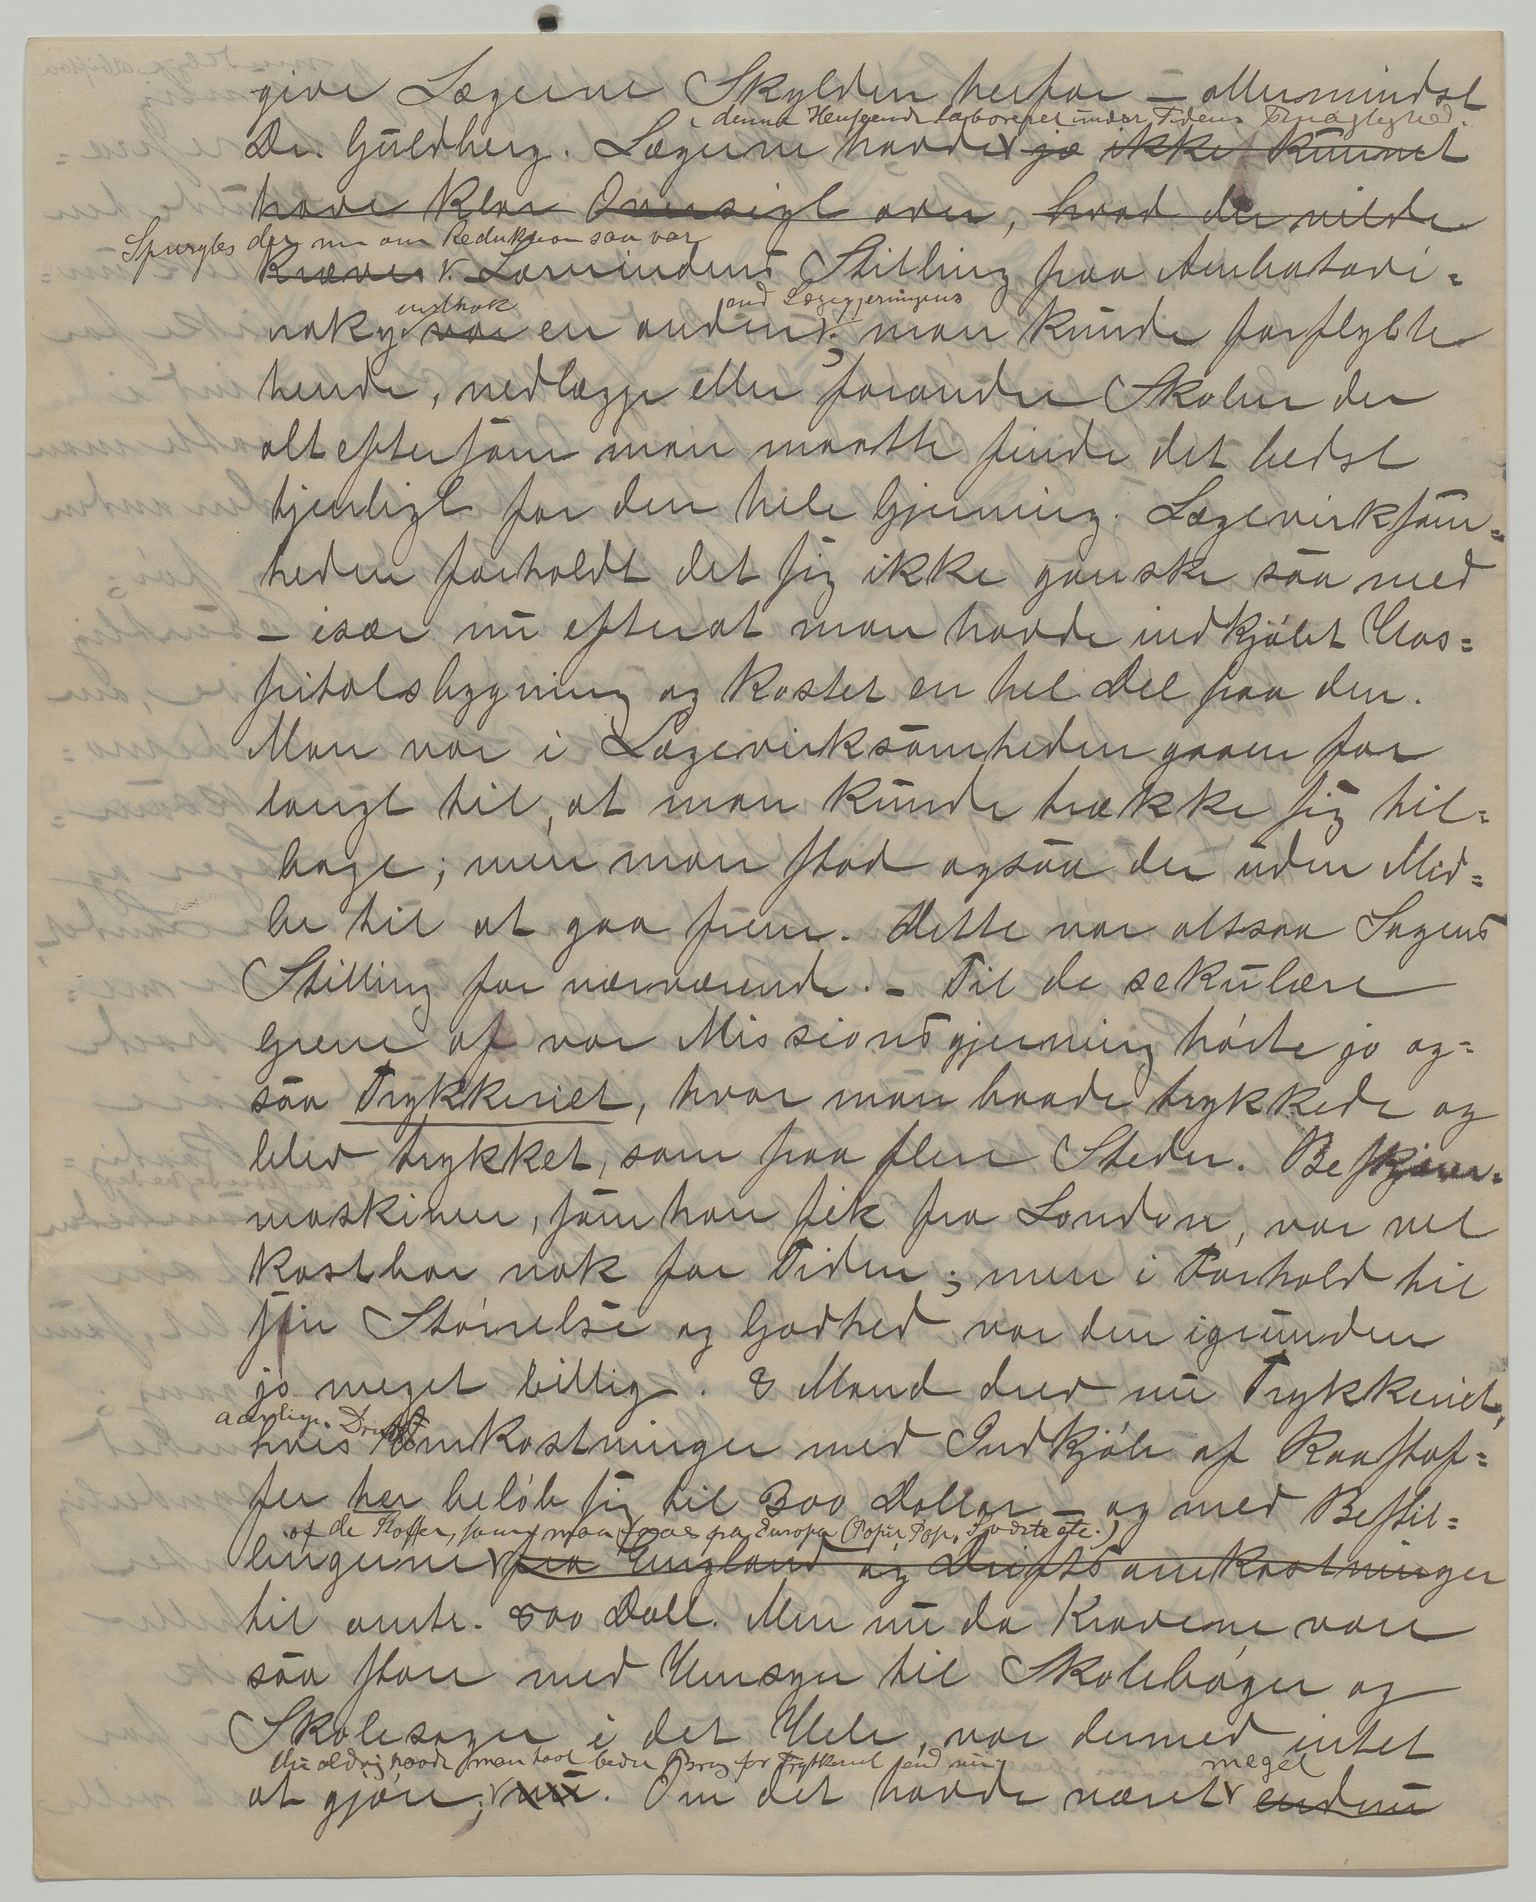 give Lægerne Skylden herfor – allermindst
i denne Henseende laboreret under Tidens
Dr. Guldberg. Lægerne havde jo ikke kunnet
have klar Oversigt over, hvad der vilde
Spurgtes der nu om Reduktion saa var
kræves. Lærerindens Stilling paa Ambatovi=
naky var en anden end Lægegjerningens; man kunde forflytte
hende, nedlægge eller forandre Skolen der
alt eftersom man maatte finde det bedst
tjenligt for den hele Gjerning. Lægevirksom=
heden forholdt det sig ikke ganske saa med
– især nu efterat man havde indkjøbt Hos=
pitalsbygning og kostet en hel Del paa den.
Man var i Lægevirksomheden gaaen for
langt til, at man kunde trække sig til=
bage; men man stod ogsaa der uden Mid=
ler til at gaa frem. Dette var altsaa Sagens
Stilling for nærværende. – Til de sekulære
Grene af vor Missionsgjerning hørte jo og=
saa Trykkeriet, hvor man baade trykkede og
blev trykket, som paa flere Steder. Beskjærer=
maskinen, som han fik fra London, var vel
kostbar nok for Tiden; men i Forhold til
sin Størrelse og Godhed var den igrunden
jo meget billig. 8 Mand drev nu Trykkeriet,
aarlige Drifts
hvis Omkostninger med Indkjøb af Raastof=
fer her beløb sig til 300 Dollar – og med Bestil=
af de Stoffer, som man tog fra Europa (Papir, Pap, Sværte etc.)
lingerne fra England og Driftsomkostninger
til omtr. 800 Doll. Men nu da Kravene vare
saa store med Hensyn til Skolebøger og
Skolesager i det Hele, var dermed intet
thi aldrig havde man havt bedre Brug for Trykkeriet end nu
at gjøre; nu. Om det havde været meget endnu